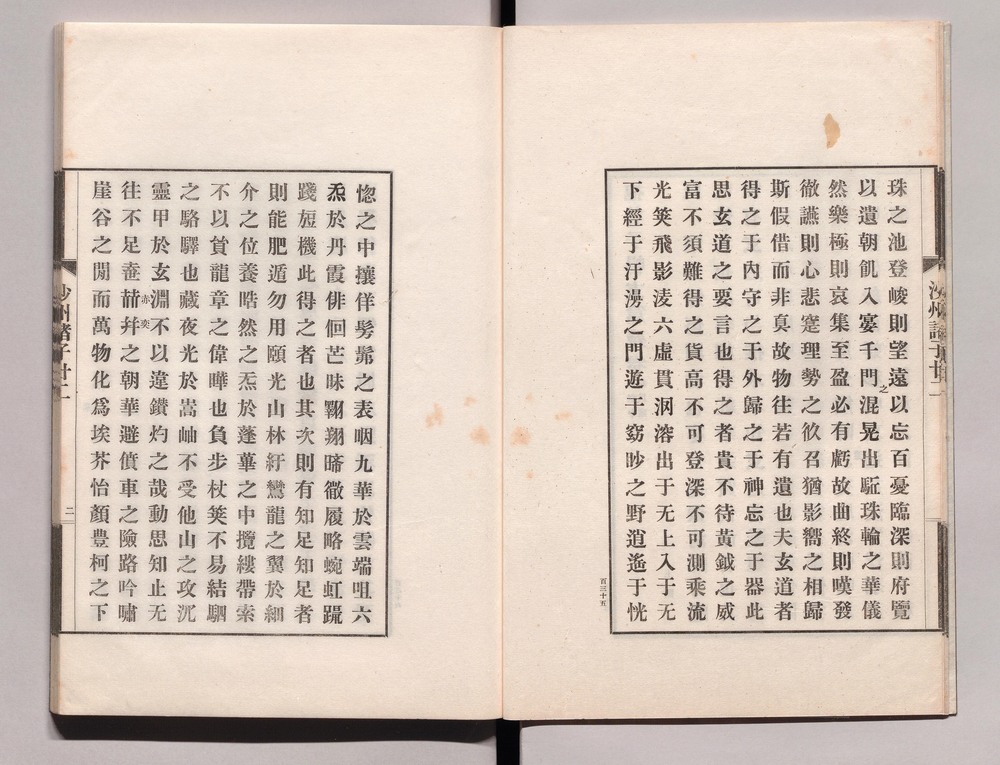 珠之池登峻則望遠以忘百憂臨深則府覽
以遺朝飢入宴千門混晃出駈珠輪之華儀
之
然樂極則哀集至盈必有虧故曲終則嘆發
徹讌則心悲寔理勢之攸召猶影嚮之相歸
斯假借而非真故物往若有遺也夫玄道者
得之于內守之于外歸之于神忘之于器此
思玄道之要言也得之者貴不待黃鉞之威
富不須難得之貨高不可登深不可測乘流
光筴飛影淩六虛貫洞溶出于无上入于无
下經于汗漫之門遊于窈眇之野逍遙于恍
百三十五
惚之中攘佯髣髴之表咽九華於雲端咀六
炁於丹霞俳佪芒昧翺翔啼徾履略蜿虹躡
踐旋機此得之者也其次則有知足知足者
則能肥遁勿用頤光山林紆鸞龍之翼於細
介之位養晧然之炁於蓬蓽之中攬縷帶索
不以貿龍章之偉曄也負步杖筴不易結駟
之駱驛也藏夜光於嵩岫不受他山之攻沉
靈甲於玄淵不以違鑽灼之哉動思知止无
往不足棄赫弈之朝華避僨車之險路吟嘯
赤奕
崖谷之閒而萬物化爲埃芥怡顏豊柯之下
二